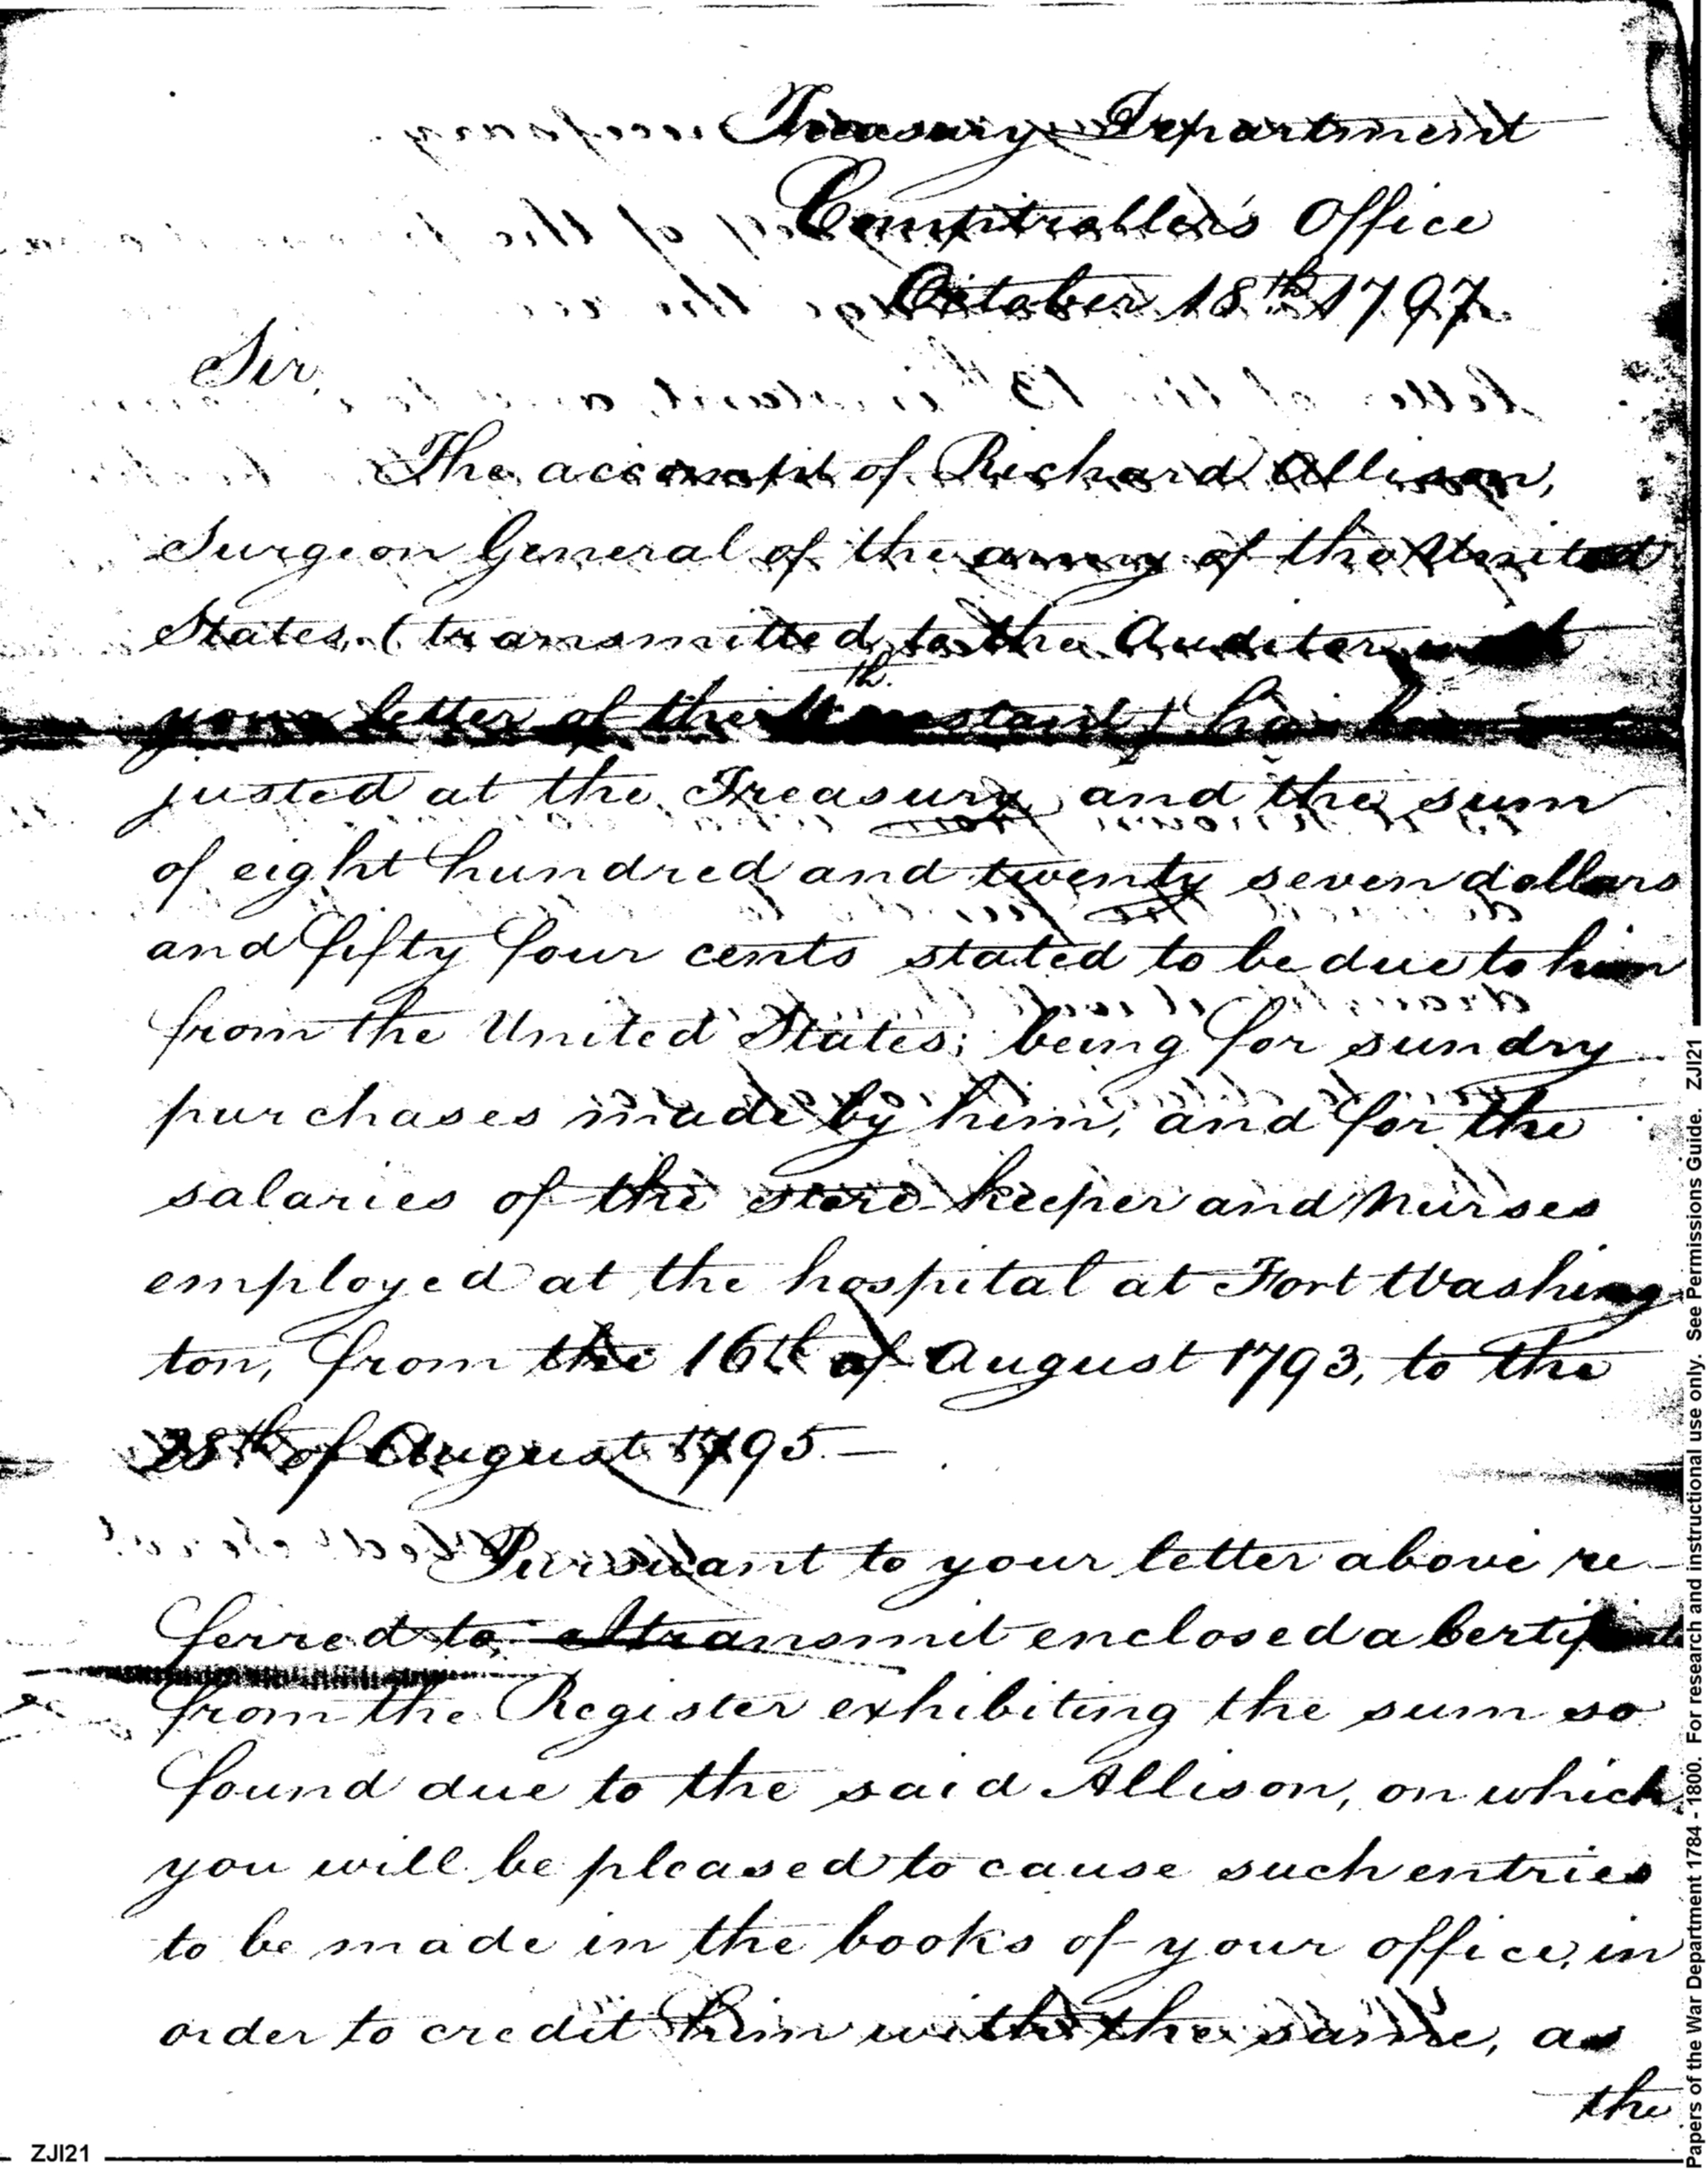 Treasury Department
Comptroller's Office
October 18th 1797
Sir,
The account of Richard Allison,
Surgeon General of the army of the United
States, (transmitted to the Auditor with
your letter of the instant) has been
justed at the Treasury, and the sum
of eight hundred and twenty seven dollars
and fifty four cents stated to be due to him
from the United States; being for sundry
purchases made by him, and for the
salaries of the store-keeper and Nurses
employed at the hospital at Fort Washing
ton, from the 16th of August 1793, to the
28th of August 1795.—
Pursuant to your letter above re-
ferred to, I transmit enclosed a Certificate
from the Register exhibiting the sum so
found due to the said Allison, on which
you will be pleased to cause such entries
to be made in the books of your office, in
order to credit him with the same, as
the
ZJI21
Papers of the War Department 1784 - 1800. For research and instructional use only. See Permissions Guide. ZJI21